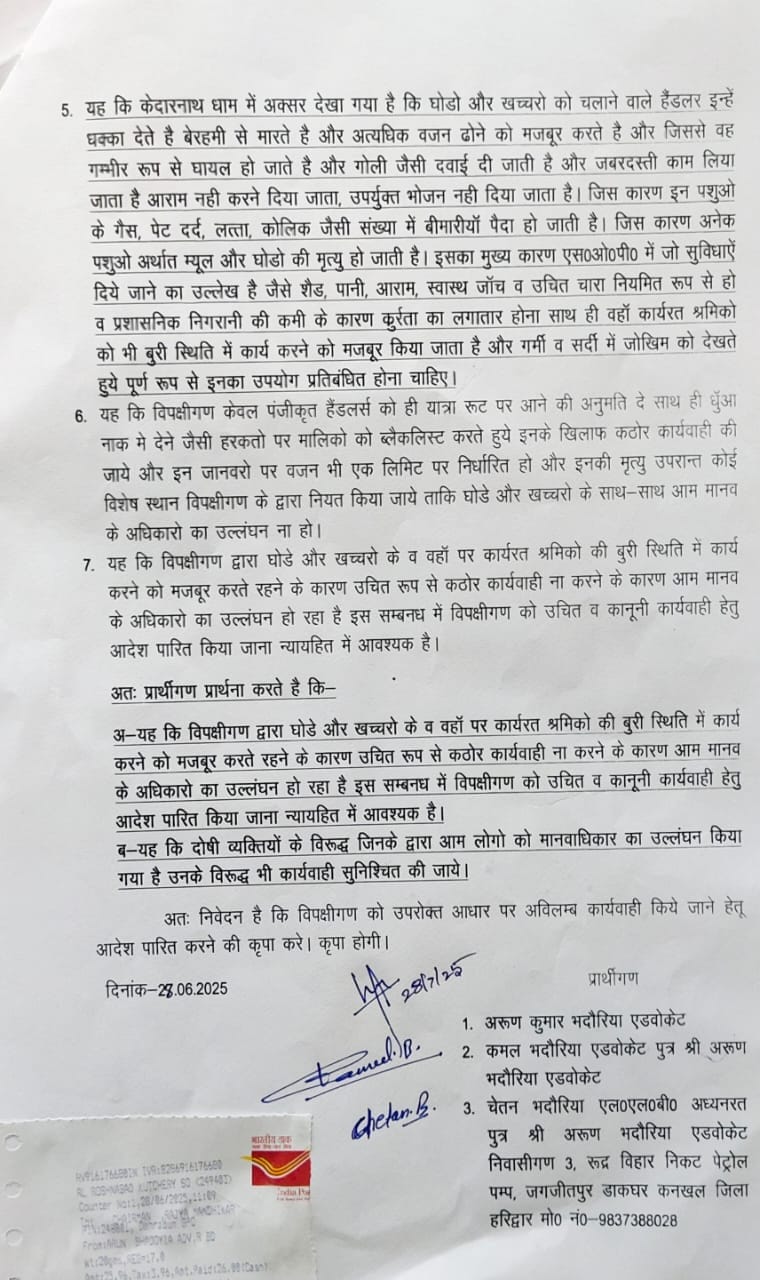 5. यह कि केदारनाथ धाम में अक्सर देखा गया है कि घोडो और खच्चरो को चलाने वाले हैंडलर इन्हें
धक्का देते है बेरहमी से मारते है और अत्यधिक वजन ढोने को मजबूर करते है और जिससे वह
गम्भीर रूप से घायल हो जाते है और गोली जैसी दवाई दी जाती है और जबरदस्ती काम लिया
जाता है आराम नही करने दिया जाता, उपर्युक्त भोजन नही दिया जाता है। जिस कारण इन पशुओ
के गैस, पेट दर्द, लत्ता, कोलिक जैसी संख्या में बीमारीयॉ पैदा हो जाती है। जिस कारण अनेक
पशुओ अर्थात म्यूल और घोडो की मृत्यु हो जाती है। इसका मुख्य कारण एस0ओ0पी0 में जो सुविधाऐं
दिये जाने का उल्लेख है जैसे शैड, पानी, आराम, स्वास्थ जॉच व उचित चारा नियमित रूप से हो
व प्रशासनिक निगरानी की कमी के कारण कुर्रता का लगातार होना साथ ही वहॉ कार्यरत श्रमिको
को भी बुरी स्थिति में कार्य करने को मजबूर किया जाता है और गर्मी व सर्दी में जोखिम को देखते
हुये पूर्ण रूप से इनका उपयोग प्रतिबंधित होना चाहिए।
6. यह कि विपक्षीगण केवल पंजीकृत हैंडलर्स को ही यात्रा रूट पर आने की अनुमति दे साथ ही धुॅआ
नाक मे देने जैसी हरकतो पर मालिको को ब्लैकलिस्ट करते हुये इनके खिलाफ कठोर कार्यवाही की
जाये और इन जानवरो पर वजन भी एक लिमिट पर निर्धारित हो और इनकी मृत्यु उपरान्त कोई
विशेष स्थान विपक्षीगण के द्वारा नियत किया जाये ताकि घोडे और खच्चरो के साथ-साथ आम मानव
के अधिकारो का उल्लंघन ना हो।
7. यह कि विपक्षीगण द्वारा घोडे और खच्चरो के व वहॉ पर कार्यरत श्रमिको की बुरी स्थिति में कार्य
करने को मजबूर करते रहने के कारण उचित रूप से कठोर कार्यवाही ना करने के कारण आम मानव
के अधिकारो का उल्लंघन हो रहा है इस सम्बनध में विपक्षीगण को उचित व कानूनी कार्यवाही हेतु
आदेश पारित किया जाना न्यायहित में आवश्यक है।
अतः प्रार्थीगण प्रार्थना करते है कि-
अ-यह कि विपक्षीगण द्वारा घोडे और खच्चरो के व वहॉ पर कार्यरत श्रमिको की बुरी स्थिति में कार्य
करने को मजबूर करते रहने के कारण उचित रूप से कठोर कार्यवाही ना करने के कारण आम मानव
के अधिकारो का उल्लंघन हो रहा है इस सम्बनध में विपक्षीगण को उचित व कानूनी कार्यवाही हेतु
आदेश पारित किया जाना न्यायहित में आवश्यक है।
ब-यह कि दोषी व्यक्तियों के विरूद्ध जिनके द्वारा आम लोगो को मानवाधिकार का उल्लंघन किया
गया है उनके विरूद्ध भी कार्यवाही सुनिश्चित की जाये।
अतः निवेदन है कि विपक्षीगण को उपरोक्त आधार पर अविलम्ब कार्यवाही किये जाने हेतू
आदेश पारित करने की कृपा करे। कृपा होगी।
दिनांक-28.06.2025
28/7/25
प्रार्थीगण
1. अरूण कुमार भदौरिया एडवोकेट
2. कमल भदौरिया एडवोकेट पुत्र श्री अरूण
भदौरिया एडवोकेट
Chetan.B.
3. चेतन भदौरिया एल0एल0बी0 अध्यनरत
पुत्र श्री अरूण भदौरिया एडवोकेट
निवासीगण 3, रूद्र विहार निकट पेट्रोल
पम्प, जगजीतपुर डाकघर कनखल जिला
हरिद्वार मो0 नं0-9837388028
भारतीय डाक
India Post
RL ROSHNABAD KUTCHERY SO (249403)
Counter No:1,28/06/2025,11:09
From:ARUN BHADORIA ADV,R BD
Wt:20gms
Amt:25.96,Tax:3.96,Amt.Paid:26.00(Cash)